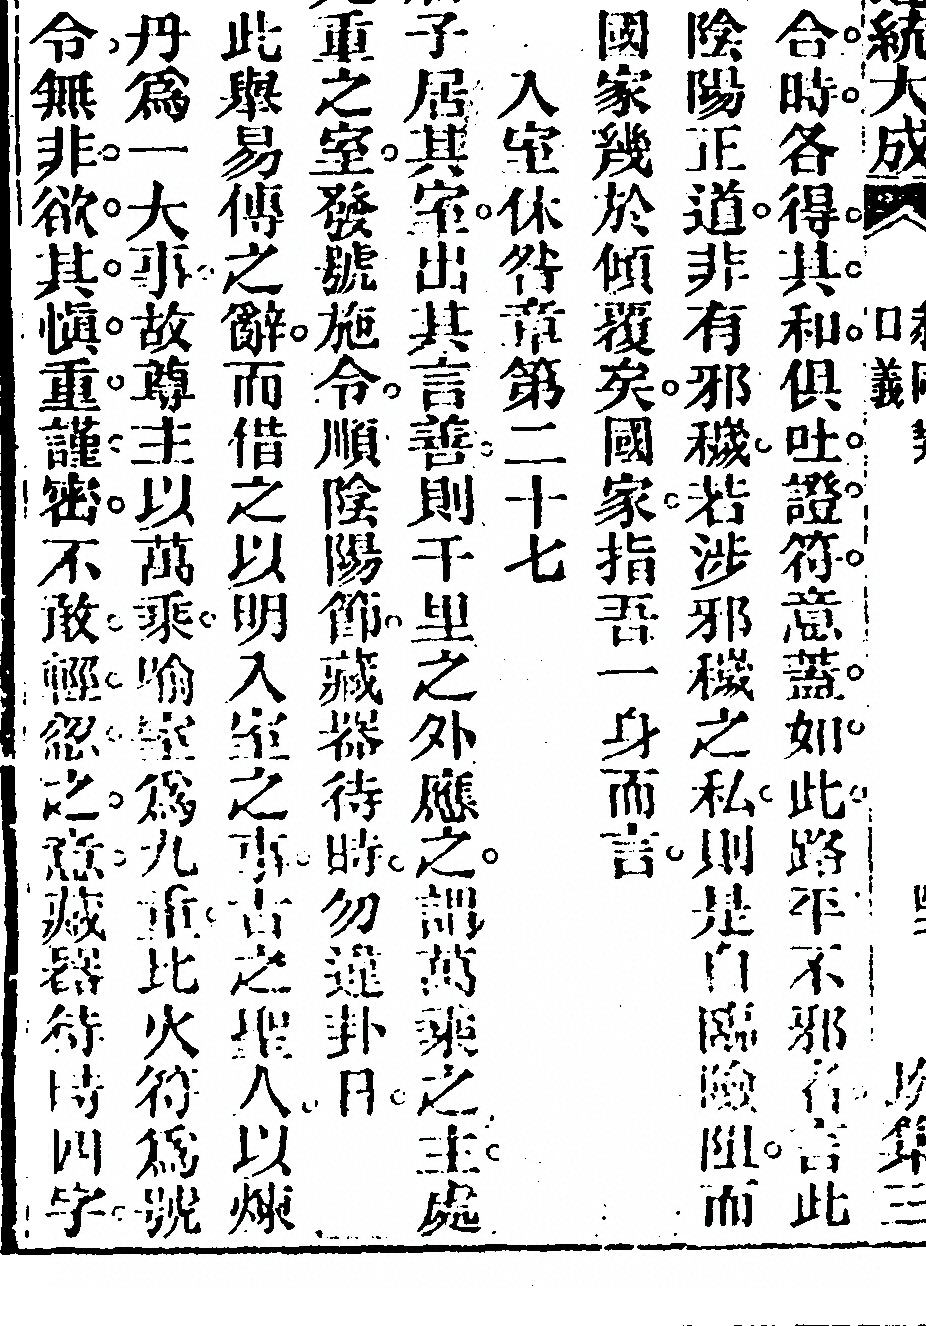 統大成 口義
合時各得其和俱吐證符意蓋如此路平不邪者言此
陰陽正道非有邪穢若涉邪穢之私則是自臨險阻而
國家幾於傾覆矣國家指吾一身而言
入室休咎章第二十七
子居其室出其言善則千里之外應之謂萬乘之主處
重之室發號施令順陰陽節藏器待時勿違卦日
此舉易傳之辭而借之以明入室之事古之聖人以煉
丹為一大事故尊主以萬乘喻室為九重比火符為號
令無非欲其慎重謹密不敢輕忽之意藏器待時四字